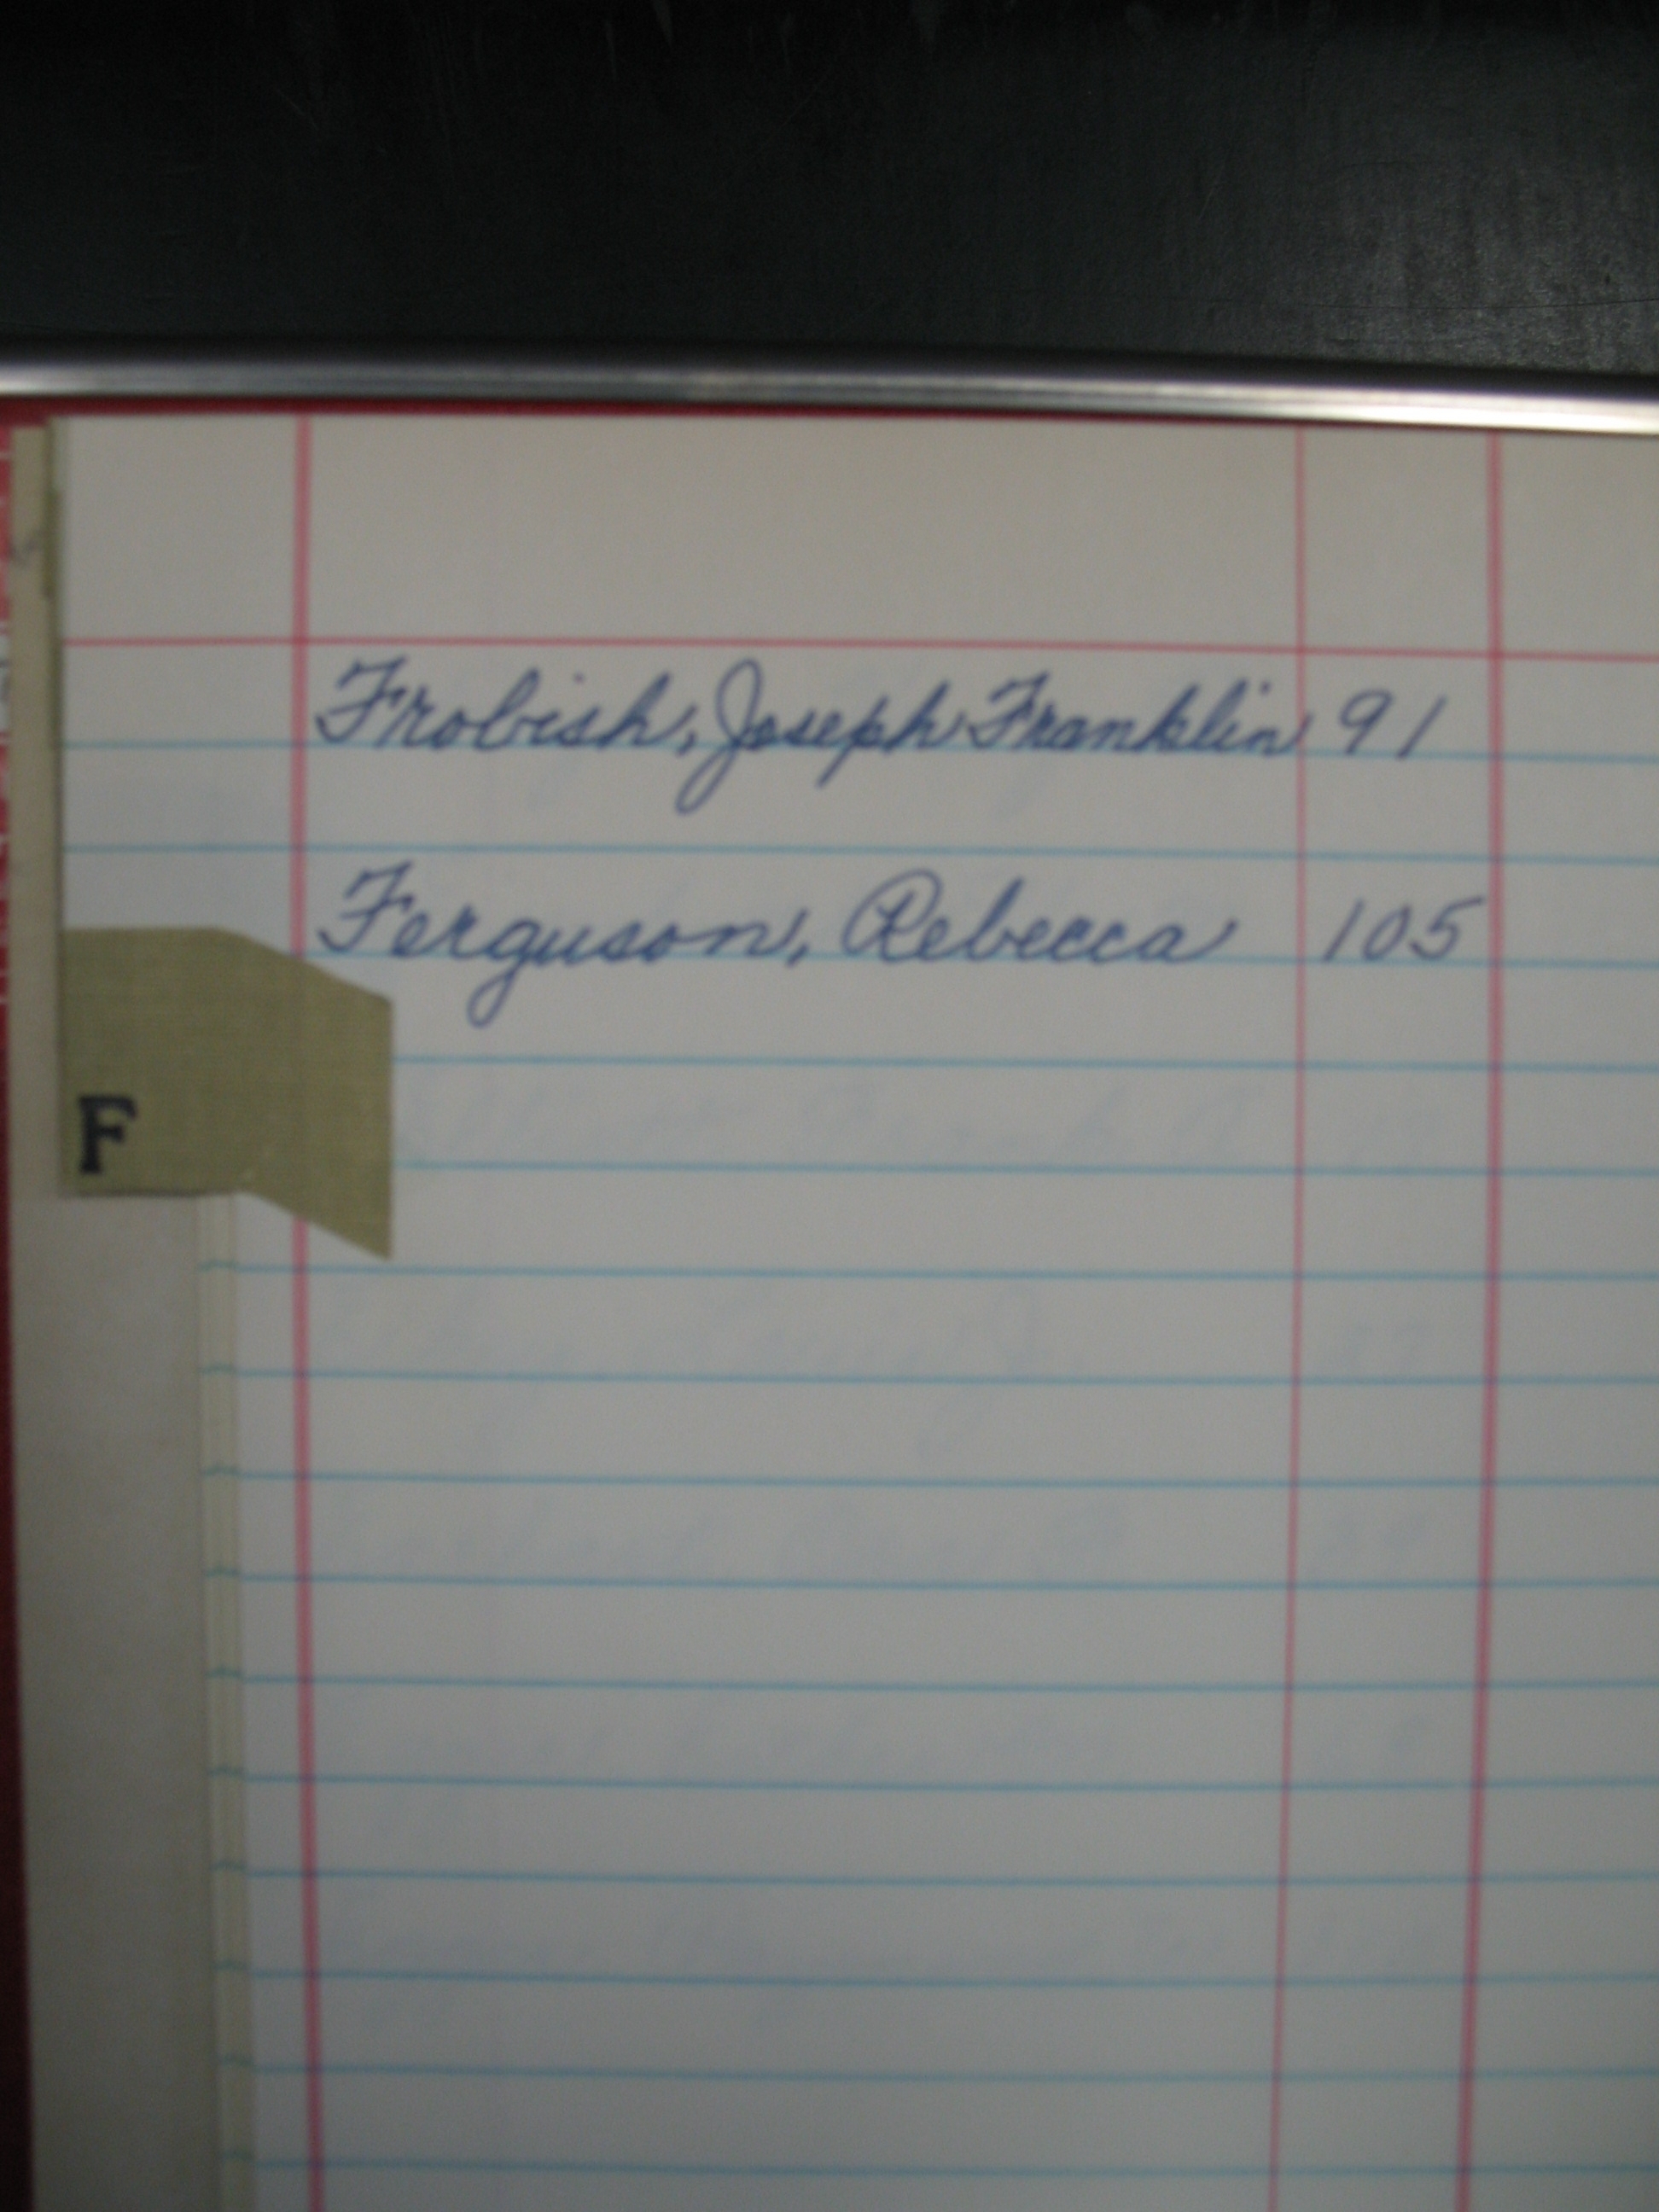 Frobish, Joseph Franklin 91
Ferguson, Rebecca 105
F